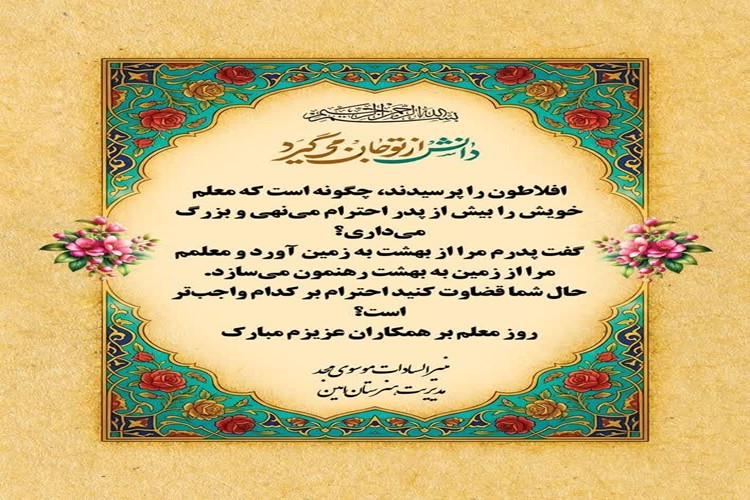 بسم الله الرحمن الرحیم
دانش از تو جان می‌گیرد
افلاطون را پرسیدند، چگونه است که معلم
خویش را بیش از پدر احترام می‌نهی و بزرگ
می‌داری؟
گفت پدرم مرا از بهشت به زمین آورد و معلمم
مرا از زمین به بهشت رهنمون می‌سازد.
حال شما قضاوت کنید احترام بر کدام واجب‌تر
است؟
روز معلم بر همکاران عزیزم مبارک
منیرالسادات موسوی مجد
مدیریت هنرستان امین